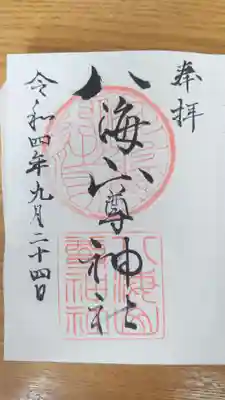 奉拝
八海山尊神社
令和四年九月二十四日